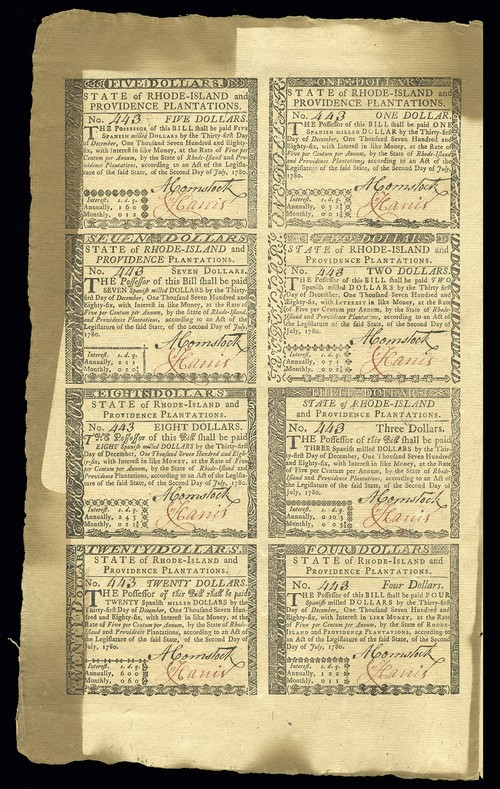 FIVE DOLLARS.
STATE of RHODE-ISLAND and
PROVIDENCE PLANTATIONS.
No. 443 FIVE DOLLARS.
THE POSSESSOR of this BILL shall be paid FIVE
SPANISH milled DOLLARS by the Thirty-first Day
of December, One Thousand Seven Hundred and Eighty-
six, with Interest in like Money, at the Rate of Five per
Centum per Annum, by the State of Rhode-Island and Pro-
vidence Plantations, according to an Act of the Legislature
of the said State, of the Second Day of July, 1780.
Interest. s. d. q.
Annually, 1 6 0
Monthly, 0 1 2
A Comstock
C Harris
ONE DOLLAR
STATE of RHODE-ISLAND and
PROVIDENCE PLANTATIONS.
No. 443 ONE DOLLAR.
THE Possessor of this BILL shall be paid ONE
SPANISH milled DOLLAR by the Thirty-first
Day of December, One Thousand Seven Hundred and
Eighty-six, with Interest in like Money, at the Rate of
Five per Centum per Annum, by the State of Rhode-Island and
Providence Plantations, according to an Act of the
Legislature of the said State, of the Second Day of July,
1780.
Interest. s. d. q.
Annually,
Monthly,
A Comstock
C Harris
SEVEN DOLLARS
STATE of RHODE-ISLAND and
PROVIDENCE PLANTATIONS.
No. 443 SEVEN DOLLARS.
THE Possessor of this Bill shall be paid
SEVEN Spanish milled DOLLARS by the Thirty-
first Day of December, One Thousand Seven Hundred and
Eighty-six, with Interest in like Money, at the Rate of
Five per Centum per Annum, by the State of Rhode-Island
and Providence Plantations, according to an Act of the
Legislature of the said State, of the Second Day of July,
1780.
Interest. s. d. q.
Annually,
Monthly,
A Comstock
C Harris
TWO DOLLARS
STATE of RHODE-ISLAND and
PROVIDENCE PLANTATIONS.
No. 443 TWO DOLLARS.
THE Possessor of this BILL shall be paid TWO
Spanish milled DOLLARS by the Thirty-first Day
of December, One Thousand Seven Hundred and Eighty-
six, with INTEREST in like Money, at the Rate of Five
per Centum per Annum, by the State of Rhode-Island
and Providence Plantations, according to an Act of
the Legislature of the said State, of the Second Day of
July, 1780.
Interest. s. d. q.
Annually,
Monthly,
A Comstock
C Harris
EIGHT DOLLARS
STATE of RHODE-ISLAND and
PROVIDENCE PLANTATIONS.
No. 443 EIGHT DOLLARS.
THE Possessor of this Bill shall be paid
EIGHT Spanish milled DOLLARS by the Thirty-first
Day of December, One Thousand Seven Hundred and Eigh-
ty-six, with Interest in like Money, at the Rate of Five
per Centum per Annum, by the State of Rhode-Island and
Providence Plantations, according to an Act of the Legisla-
ture of the said State, of the Second Day of July, 1780.
Interest. s. d. q.
Annually,
Monthly,
A Comstock
C Harris
THREE DOLLARS
STATE of RHODE-ISLAND
and PROVIDENCE PLANTATIONS.
No. 443 Three Dollars.
THE Possessor of this Bill shall be paid
THREE Spanish milled DOLLARS by the Thirty-first
Day of December, One Thousand Seven Hundred and
Eighty-six, with Interest in like Money, at the Rate of
Five per Centum per Annum, by the State of Rhode-
Island and Providence Plantations, according to an Act of
the Legislature of the said State, of the Second Day of
July, 1780.
Interest. s. d. q.
Annually,
Monthly,
A Comstock
C Harris
TWENTY DOLLARS.
STATE of RHODE-ISLAND and
PROVIDENCE PLANTATIONS.
No. 443 TWENTY DOLLARS.
THE Possessor of this Bill shall be paid
TWENTY Spanish MILLED DOLLARS by the
Thirty-first Day of December, One Thousand Seven Hun-
dred and Eighty-six, with Interest in like Money, at the
Rate of Five per Centum per Annum, by the State of Rhode-
Island and Providence Plantations, according to an Act of
the Legislature of the said State, of the Second Day of
July, 1780.
Interest. s. d. q.
Annually, 6 0 0
Monthly, 0 6 0
TWENTY DOLLARS
A Comstock
C Harris
FOUR DOLLARS
STATE of RHODE-ISLAND and
PROVIDENCE PLANTATIONS.
No. 443 Four Dollars.
THE Possessor of this BILL shall be paid FOUR
Spanish milled DOLLARS by the Thirty-first Day of
December, One Thousand Seven Hundred and Eighty-
six, with Interest in like MONEY, at the Rate of
Five per Centum per Annum, by the State of RHODE-
ISLAND and PROVIDENCE PLANTATIONS, according to
an Act of the Legislature of the said State, of the Second
Day of July, 1780.
Interest. s. d. q.
Annually, 1 2 2
Monthly, 0 1 1
A Comstock
C Harris